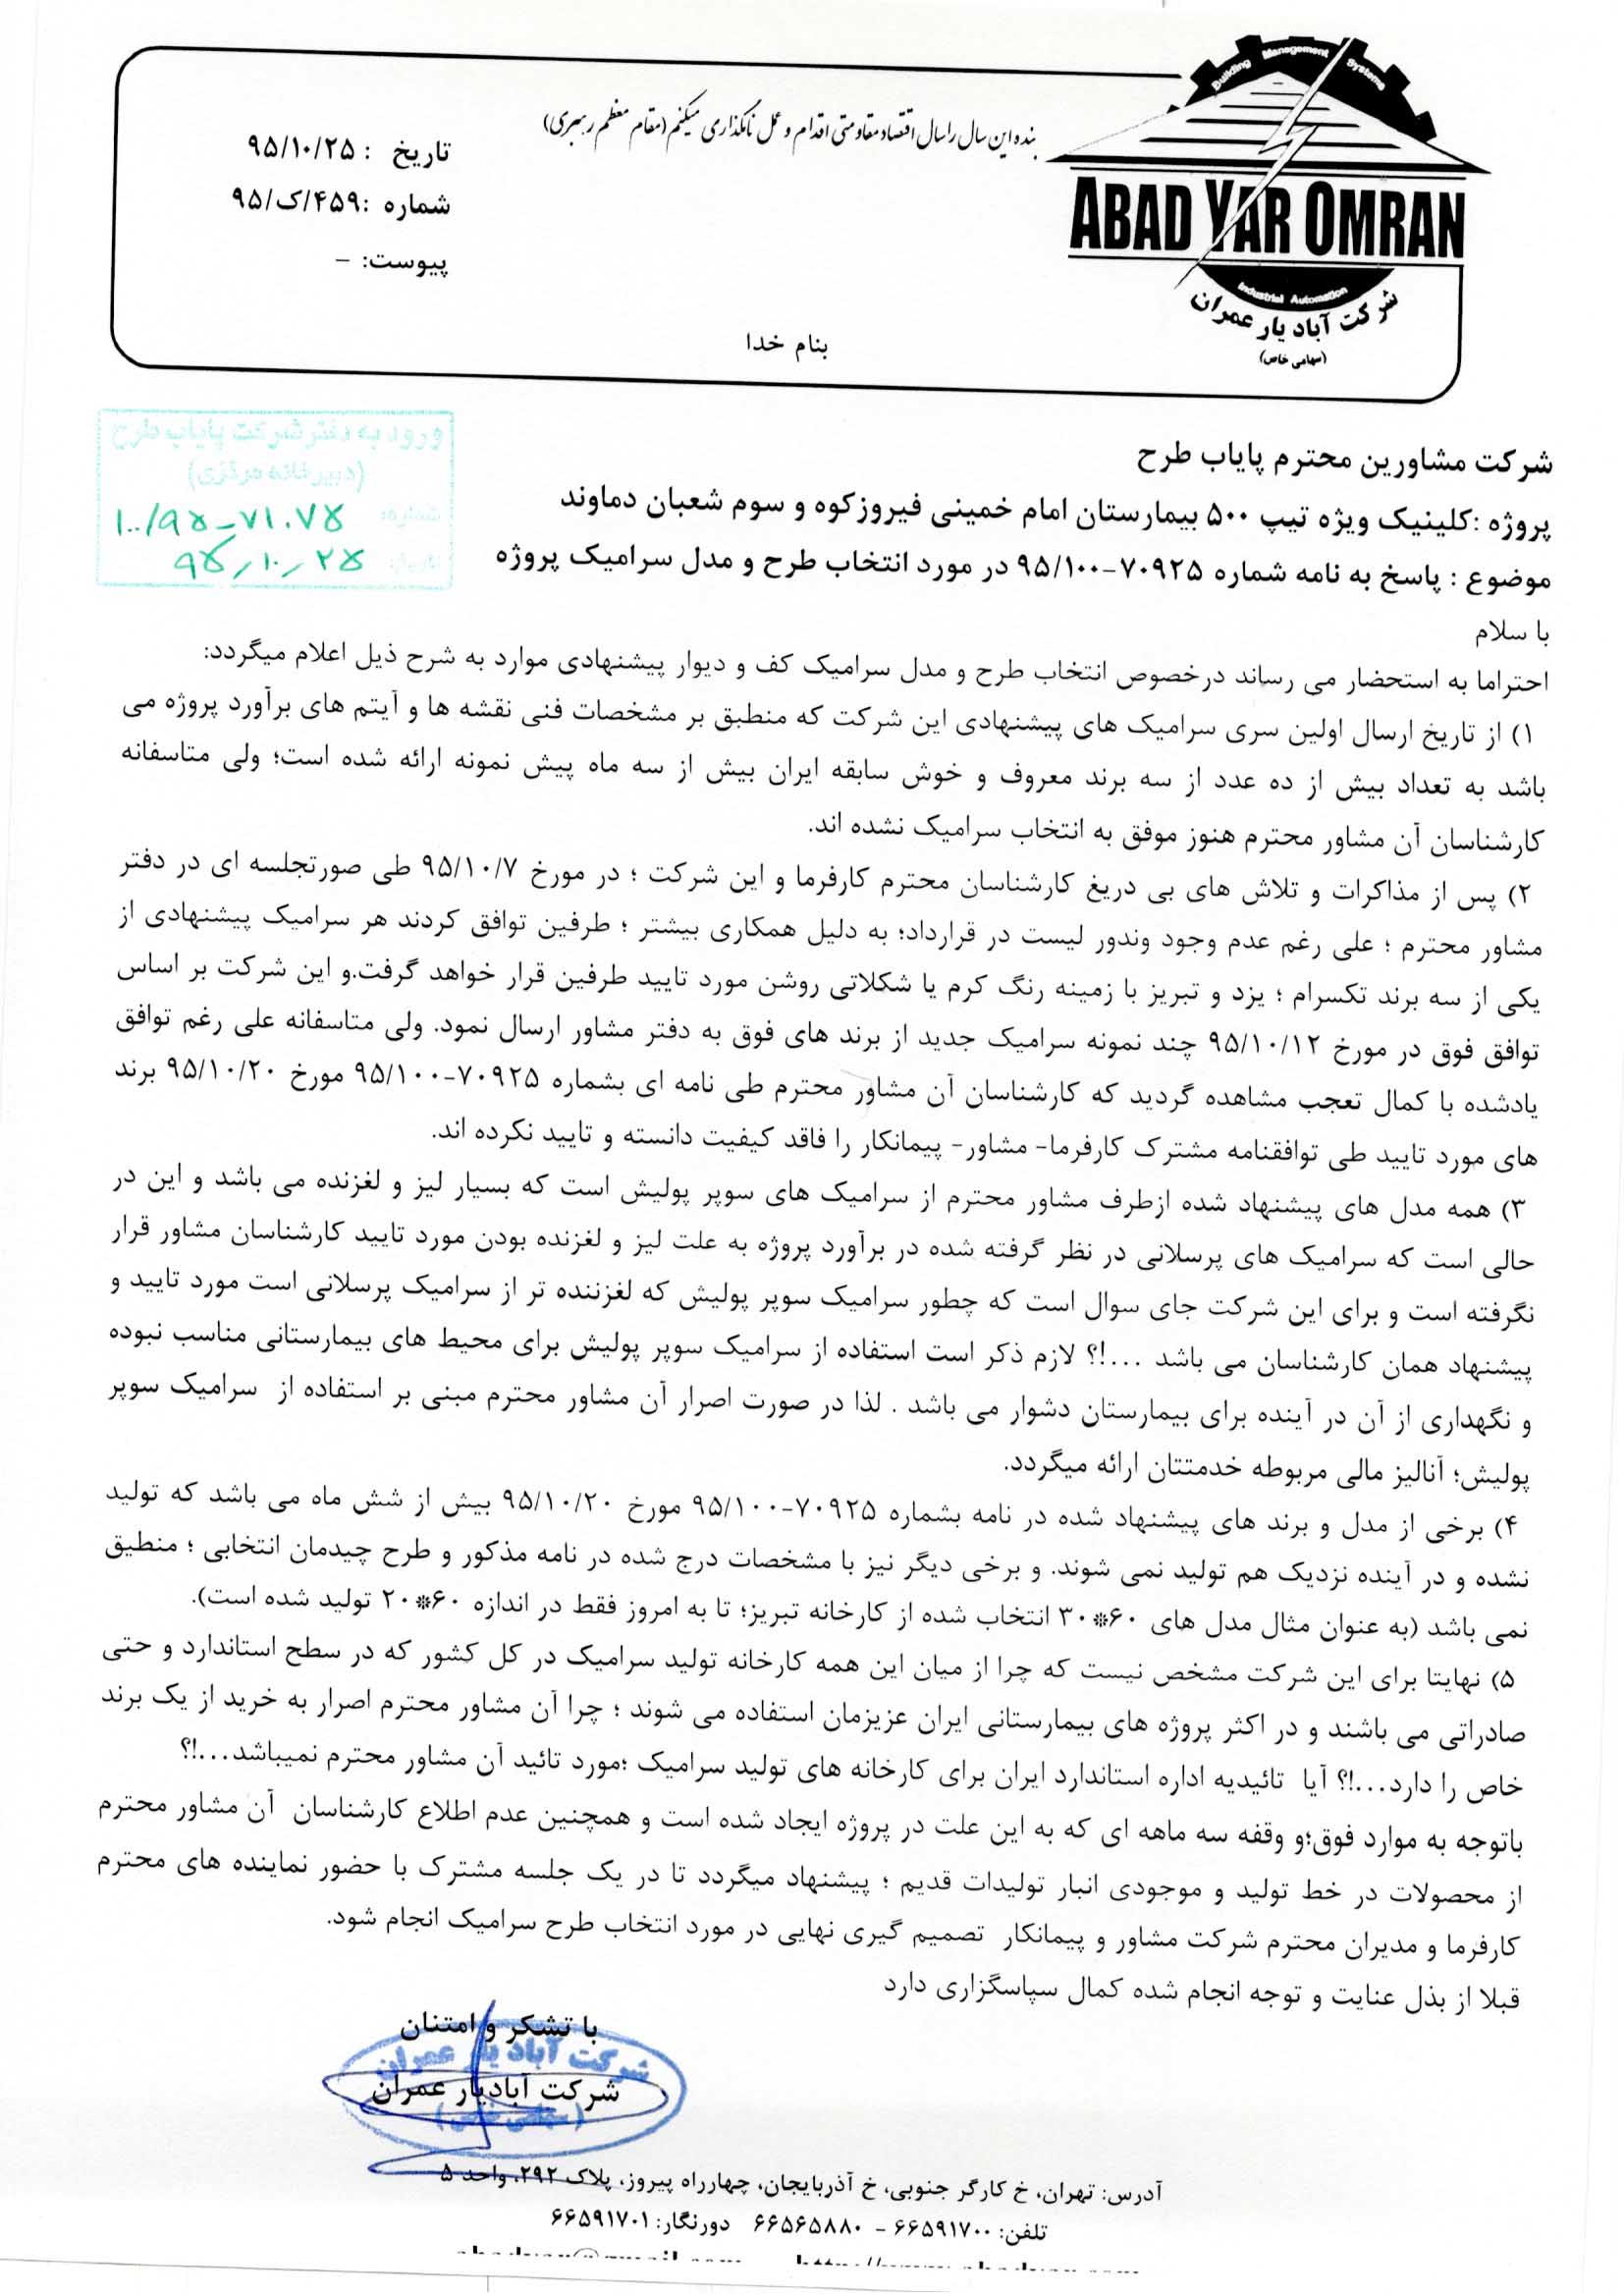 Building Management Systems
ABAD YAR OMRAN
Industrial Automation
شرکت آباد یار عمران
(سهامی خاص)
بنده این سال را سال اقتصاد مقاومتی اقدام و عمل نامگذاری میکنم (مقام معظم رهبری)
تاریخ : ۹۵/۱۰/۲۵
شماره :۴۵۹/ک/۹۵
پیوست: –
بنام خدا
ورود به دفتر شرکت پایاب طرح
(دبیرخانه مرکزی)
شماره: ۱۰۰/۹۵-۷۱۰۷۵
تاریخ: ۹۵/۱۰/۲۵
شرکت مشاورین محترم پایاب طرح
پروژه :کلینیک ویژه تیپ ۵۰۰ بیمارستان امام خمینی فیروزکوه و سوم شعبان دماوند
موضوع : پاسخ به نامه شماره ۷۰۹۲۵-۹۵/۱۰۰ در مورد انتخاب طرح و مدل سرامیک پروژه
با سلام
احتراما به استحضار می رساند درخصوص انتخاب طرح و مدل سرامیک کف و دیوار پیشنهادی موارد به شرح ذیل اعلام میگردد:
۱) از تاریخ ارسال اولین سری سرامیک های پیشنهادی این شرکت که منطبق بر مشخصات فنی نقشه ها و آیتم های برآورد پروژه می
باشد به تعداد بیش از ده عدد از سه برند معروف و خوش سابقه ایران بیش از سه ماه پیش نمونه ارائه شده است؛ ولی متاسفانه
کارشناسان آن مشاور محترم هنوز موفق به انتخاب سرامیک نشده اند.
۲) پس از مذاکرات و تلاش های بی دریغ کارشناسان محترم کارفرما و این شرکت ؛ در مورخ ۹۵/۱۰/۷ طی صورتجلسه ای در دفتر
مشاور محترم ؛ علی رغم عدم وجود وندور لیست در قرارداد؛ به دلیل همکاری بیشتر ؛ طرفین توافق کردند هر سرامیک پیشنهادی از
یکی از سه برند تکسرام ؛ یزد و تبریز با زمینه رنگ کرم یا شکلاتی روشن مورد تایید طرفین قرار خواهد گرفت.و این شرکت بر اساس
توافق فوق در مورخ ۹۵/۱۰/۱۲ چند نمونه سرامیک جدید از برند های فوق به دفتر مشاور ارسال نمود. ولی متاسفانه علی رغم توافق
یادشده با کمال تعجب مشاهده گردید که کارشناسان آن مشاور محترم طی نامه ای بشماره ۷۰۹۲۵-۹۵/۱۰۰ مورخ ۹۵/۱۰/۲۰ برند
های مورد تایید طی توافقنامه مشترک کارفرما- مشاور- پیمانکار را فاقد کیفیت دانسته و تایید نکرده اند.
۳) همه مدل های پیشنهاد شده ازطرف مشاور محترم از سرامیک های سوپر پولیش است که بسیار لیز و لغزنده می باشد و این در
حالی است که سرامیک های پرسلانی در نظر گرفته شده در برآورد پروژه به علت لیز و لغزنده بودن مورد تایید کارشناسان مشاور قرار
نگرفته است و برای این شرکت جای سوال است که چطور سرامیک سوپر پولیش که لغزننده تر از سرامیک پرسلانی است مورد تایید و
پیشنهاد همان کارشناسان می باشد ...!؟ لازم ذکر است استفاده از سرامیک سوپر پولیش برای محیط های بیمارستانی مناسب نبوده
و نگهداری از آن در آینده برای بیمارستان دشوار می باشد . لذا در صورت اصرار آن مشاور محترم مبنی بر استفاده از سرامیک سوپر
پولیش؛ آنالیز مالی مربوطه خدمتتان ارائه میگردد.
۴) برخی از مدل و برند های پیشنهاد شده در نامه بشماره ۷۰۹۲۵-۹۵/۱۰۰ مورخ ۹۵/۱۰/۲۰ بیش از شش ماه می باشد که تولید
نشده و در آینده نزدیک هم تولید نمی شوند. و برخی دیگر نیز با مشخصات درج شده در نامه مذکور و طرح چیدمان انتخابی ؛ منطیق
نمی باشد (به عنوان مثال مدل های ۶۰*۳۰ انتخاب شده از کارخانه تبریز؛ تا به امروز فقط در اندازه ۶۰*۲۰ تولید شده است).
۵) نهایتا برای این شرکت مشخص نیست که چرا از میان این همه کارخانه تولید سرامیک در کل کشور که در سطح استاندارد و حتی
صادراتی می باشند و در اکثر پروژه های بیمارستانی ایران عزیزمان استفاده می شوند ؛ چرا آن مشاور محترم اصرار به خرید از یک برند
خاص را دارد...!؟ آیا تائیدیه اداره استاندارد ایران برای کارخانه های تولید سرامیک ؛مورد تائید آن مشاور محترم نمیباشد...!؟
باتوجه به موارد فوق؛و وقفه سه ماهه ای که به این علت در پروژه ایجاد شده است و همچنین عدم اطلاع کارشناسان آن مشاور محترم
از محصولات در خط تولید و موجودی انبار تولیدات قدیم ؛ پیشنهاد میگردد تا در یک جلسه مشترک با حضور نماینده های محترم
کارفرما و مدیران محترم شرکت مشاور و پیمانکار تصمیم گیری نهایی در مورد انتخاب طرح سرامیک انجام شود.
قبلا از بذل عنایت و توجه انجام شده کمال سپاسگزاری دارد
با تشکر و امتنان
شرکت آباد یار عمران
شرکت آبادیار عمران
(سهامی خاص)
آدرس: تهران، خ کارگر جنوبی، خ آذربایجان، چهارراه پیروز، پلاک ۲۹۲، واحد ۵
تلفن: ۶۶۵۹۱۷۰۰ - ۶۶۵۶۵۸۸۰ دورنگار: ۶۶۵۹۱۷۰۱